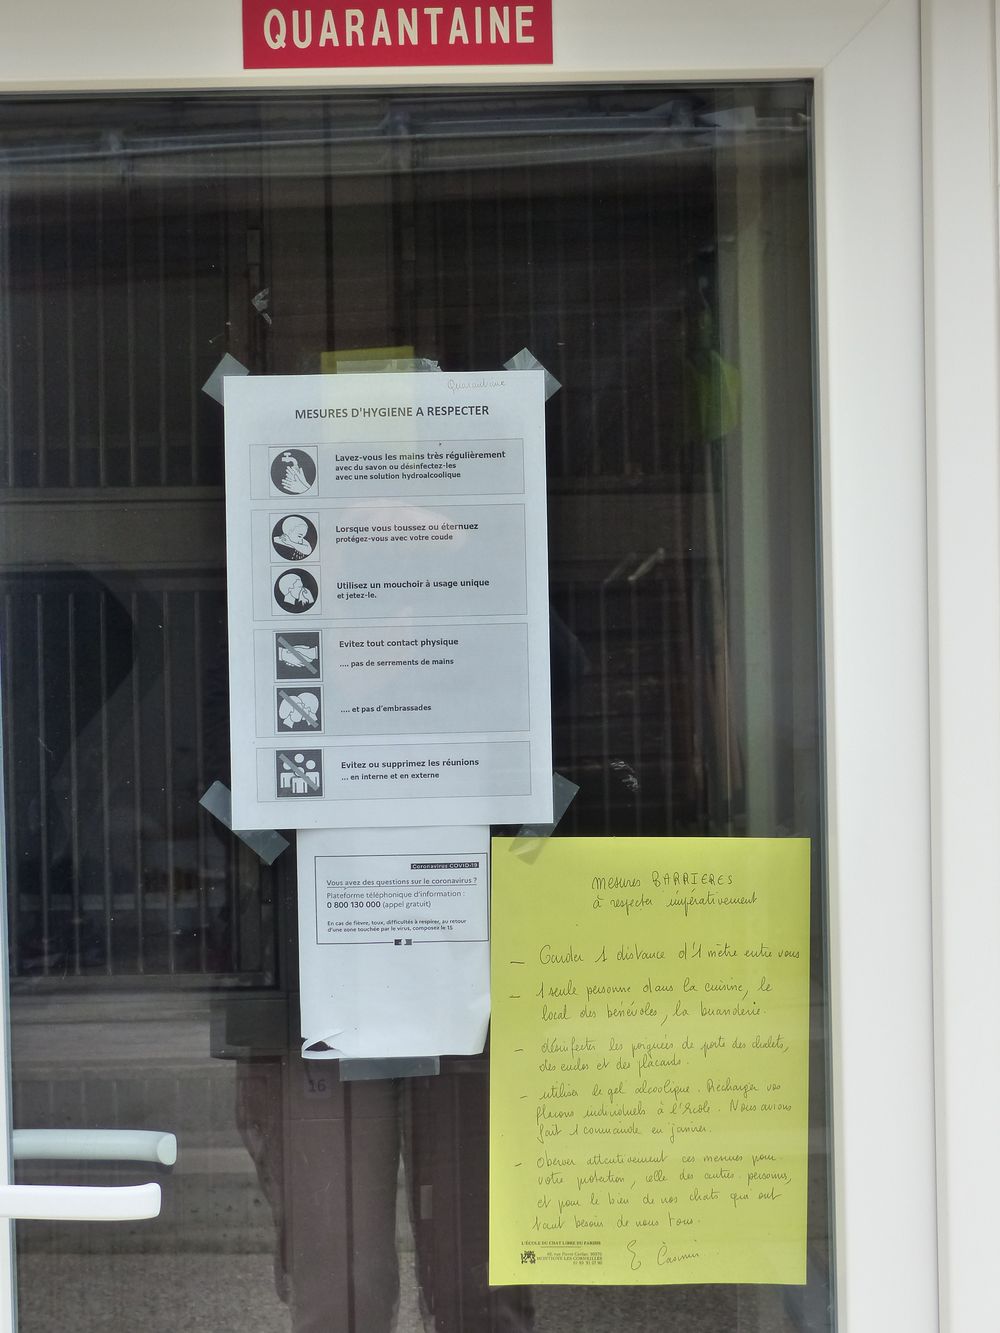 QUARANTAINE
Quarantaine
MESURES D'HYGIENE A RESPECTER
Lavez-vous les mains très régulièrement
avec du savon ou désinfectez-les
avec une solution hydroalcoolique
Lorsque vous toussez ou éternuez
protégez-vous avec votre coude
Utilisez un mouchoir à usage unique
et jetez-le.
Evitez tout contact physique
.... pas de serrements de mains
.... et pas d'embrassades
Evitez ou supprimez les réunions
... en interne et en externe
Coronavirus COVID-19
Vous avez des questions sur le coronavirus ?
Plateforme téléphonique d'information :
0 800 130 000 (appel gratuit)
En cas de fièvre, toux, difficultés à respirer, au retour
d'une zone touchée par le virus, composez le 15
16
mesures BARRIERES
à respecter impérativement
– Garder 1 distance d'1 mètre entre vous
– 1 seule personne dans la cuisine, le
local des bénévoles, la buanderie.
– désinfecter les poignées de porte des chalets,
des enclos et des placards.
– utiliser le gel alcoolique. Recharger vos
flacons individuels à l'école. Nous avions
fait 1 commande en janvier.
– Observer attentivement ces mesures pour
votre protection, celle des autres personnes,
et pour le bien de nos chats qui ont
tant besoin de nous tous.
L'ÉCOLE DU CHAT LIBRE DU PARISIS
MONTIGNY LES CORMEILLES
E Casimir